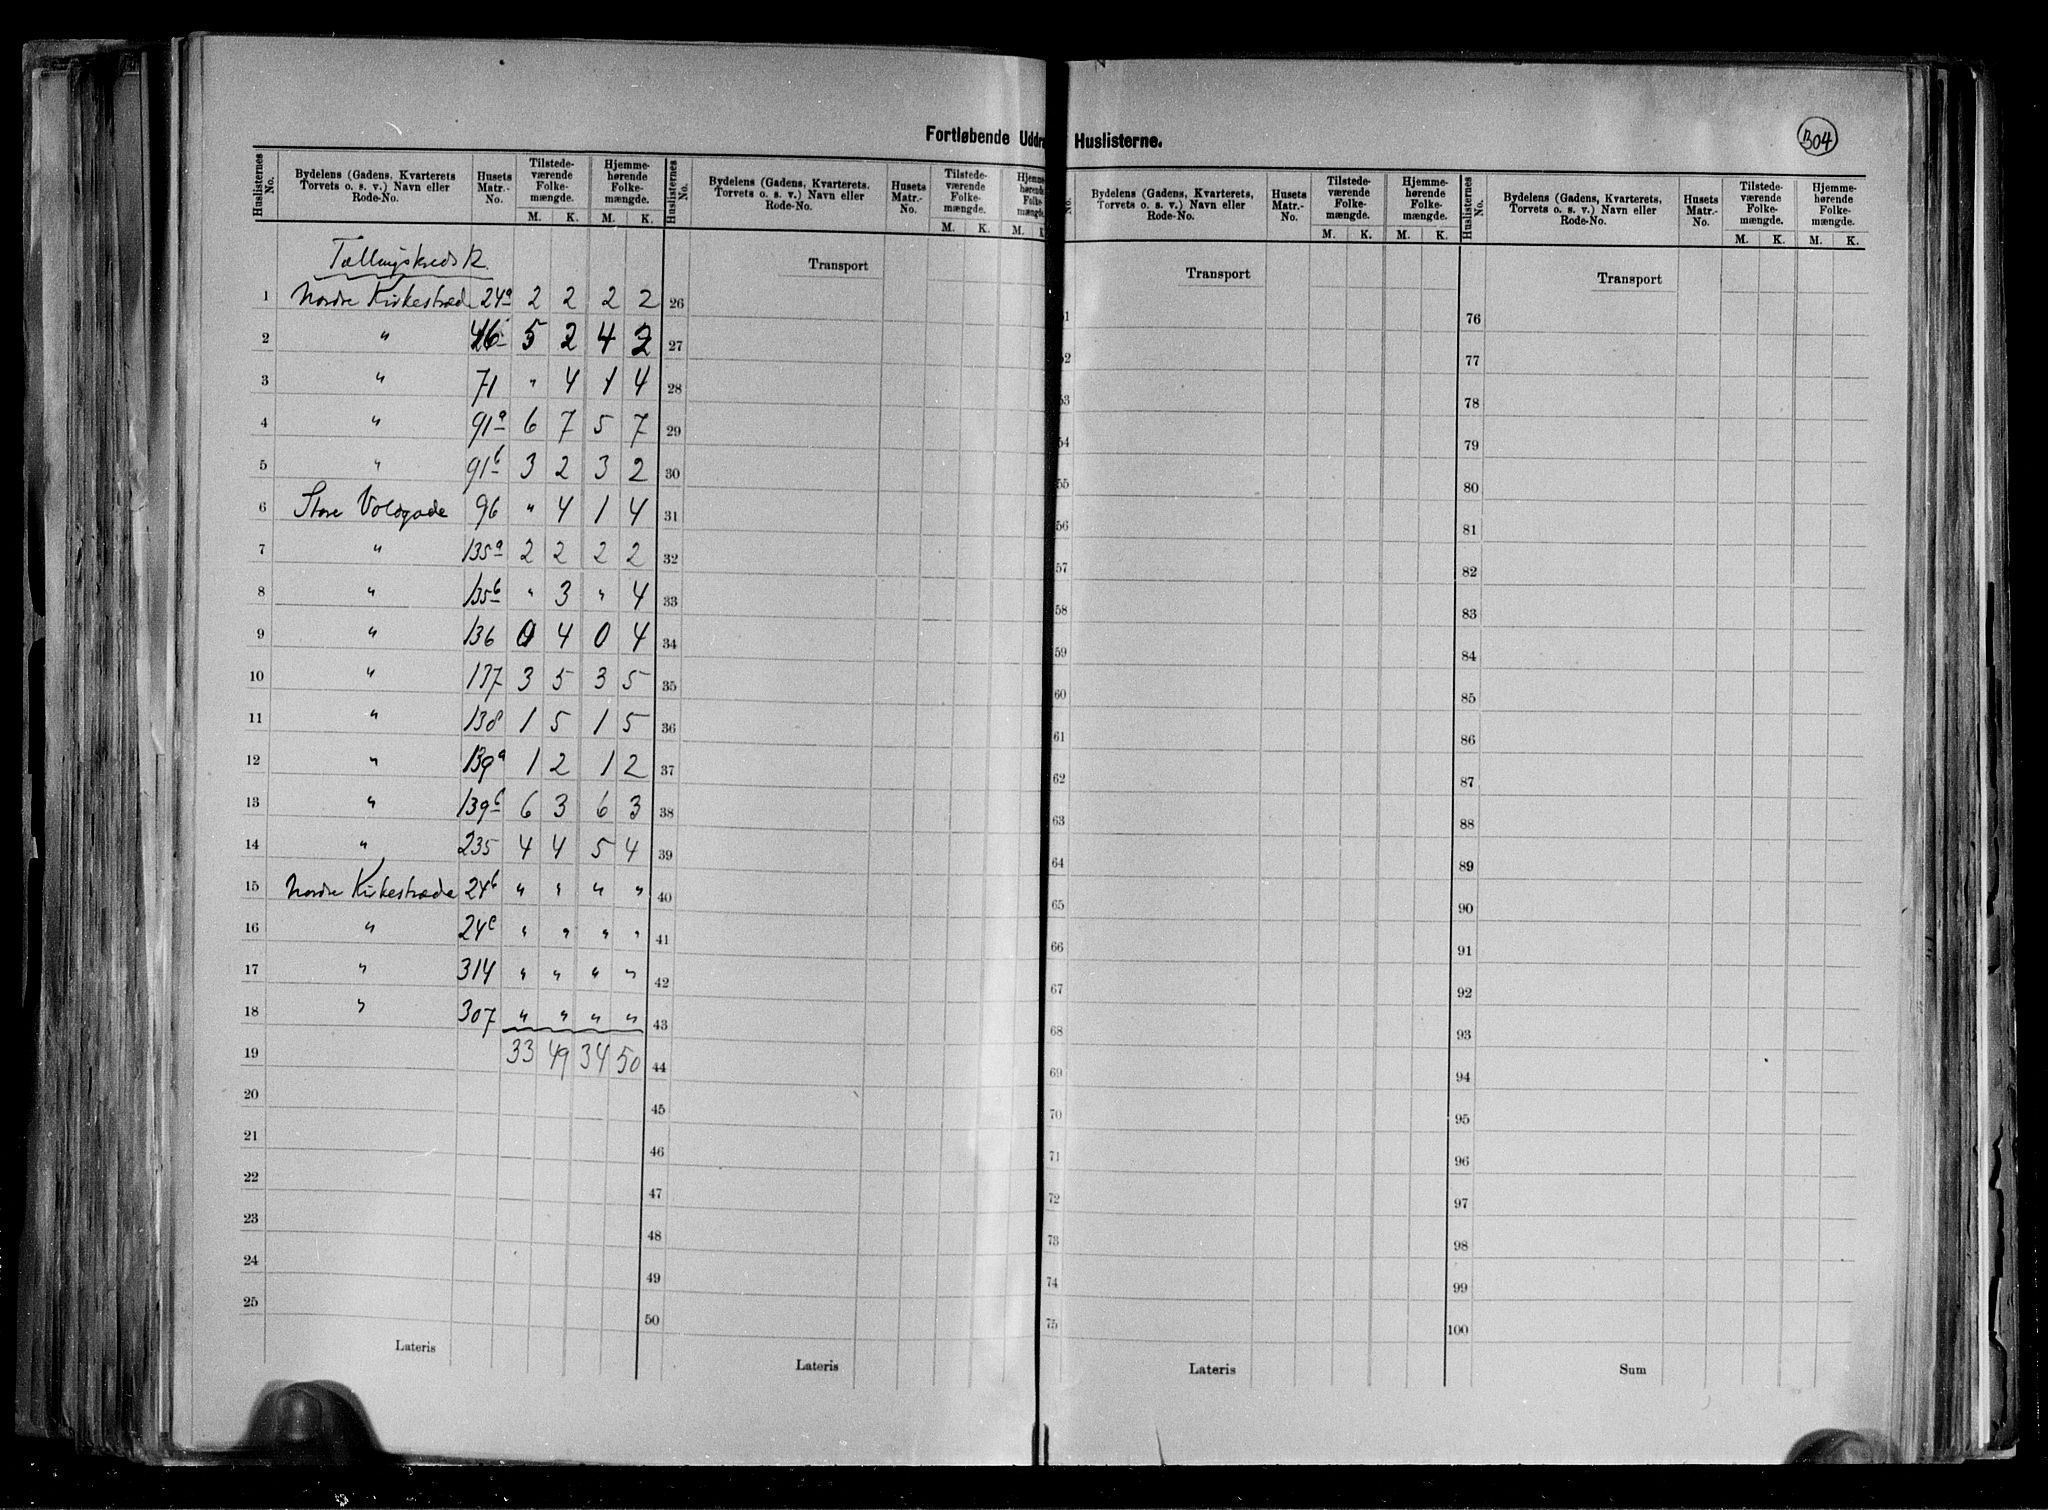 Fortløbende Uddr
Huslisterne.
304
Huslisternes No. Bydelens (Gadens, Kvarterets Torvets o. s. v.) Navn eller Rode-No. Husets Matr.-No. Tilstedeværende Folkemængde. M. K. Hjemmehørende Folkemængde. M. K.
Tællingskreds 12.
1 Nordre Kirkestræde 24a 2 2 2 2
2 " 46 5 2 4 2
3 " 71 " 4 1 4
4 " 91a 6 7 5 7
5 " 91b 3 2 3 2
6 Store Voldgade 96 " 4 1 4
7 " 135a 2 2 2 2
8 " 135b " 3 " 4
9 " 136 0 4 0 4
10 " 137 3 5 3 5
11 " 138 1 5 1 5
12 " 139a 1 2 1 2
13 " 139b 6 3 6 3
14 " 235 4 4 5 4
15 Nordre Kirkestræde 24b " " " "
16 " 24c " " " "
17 " 314 " " " "
18 " 307 " " " "
19 33 49 34 50
20
21
22
23
24
25
Lateris
Huslisternes No. Bydelens (Gadens, Kvarterets, Torvets o. s. v.) Navn eller Rode-No. Husets Matr.-No. Tilstedeværende Folkemængde. M. K. M.
Transport
26
27
28
29
30
31
32
33
34
35
36
37
38
39
40
41
42
43
44
45
46
47
48
49
50
Lateris
No. Bydelens (Gadens, Kvarterets, Torvets o. s. v.) Navn eller Rode-No. Husets Matr.-No. Tilstedeværende Folkemængde. M. K. Hjemmehørende Folkemængde. M. K.
Transport
1
52
53
54
55
56
57
58
59
60
61
62
63
64
65
66
67
68
69
70
71
72
73
74
75
Lateris
Huslisternes No. Bydelens (Gadens, Kvarterets, Torvets o. s. v.) Navn eller Rode-No. Husets Matr.-No. Tilstedeværende Folkemængde. M. K. Hjemmehørende Folkemængde. M. K.
Transport
76
77
78
79
80
81
82
83
84
85
86
87
88
89
90
91
92
93
94
95
96
97
98
99
100
Sum